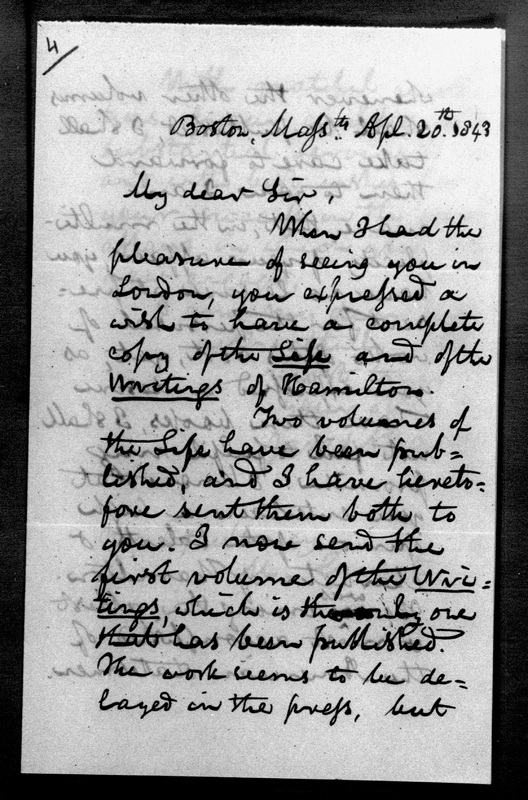 4
Boston, Mass.ts Apl. 20.th 1843
My dear Sir,
When I had the
pleasure of seeing you in
London, you expressed a
wish to have a complete
copy of the Life and of the
Writings of Hamilton.
Two volumes of
the Life have been pub=
lished, and I have hereto=
fore sent them both to
you. I now send the
first volume of the Wri=
tings, which is the only one
that has been published.
The work seems to be de=
layed in the press, but